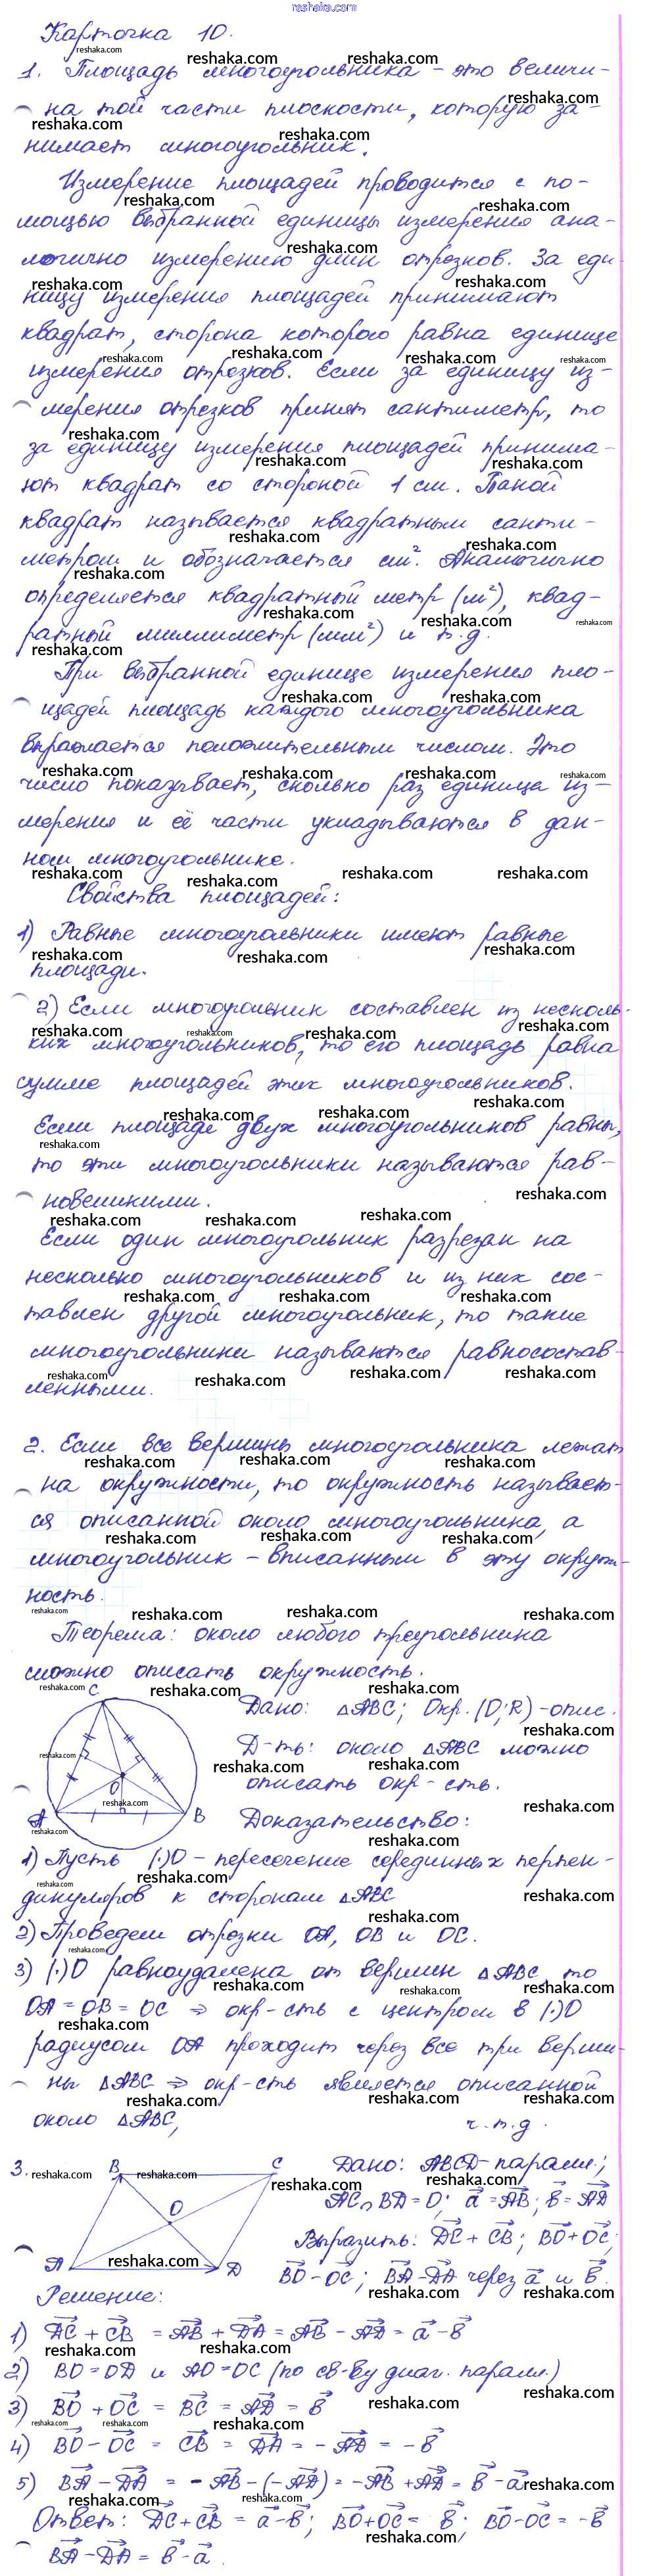 reshaka.com
Карточка 10.
1. Площадь многоугольника – это величи-
на той части плоскости, которую за-
нимает многоугольник.
Измерение площадей проводится с по-
мощью выбранной единицы измерения ана-
логично измерению длин отрезков. За еди
ницу измерения площадей принимают
квадрат, сторона которого равна единице
измерения отрезков. Если за единицу из-
мерения отрезков принят сантиметр, то
за единицу измерения площадей принима-
ют квадрат со стороной 1 см. Такой
квадрат называется квадратным санти-
метром и обозначается см². Аналогично
определяется квадратный метр (м²), квад-
ратный миллиметр (мм²) и т.д.
При выбранной единице измерения пло-
щадей площадь каждого многоугольника
выражается положительным числом. Это
число показывает, сколько раз единица из-
мерения и её части укладываются в дан-
ном многоугольнике.
Свойства площадей:
1) Равные многоугольники имеют равные
площади.
2) Если многоугольник составлен из несколь-
ких многоугольников, то его площадь равна
сумме площадей этих многоугольников.
Если площади двух многоугольников равны,
то эти многоугольники называются рав-
новеликими.
Если один многоугольник разрезан на
несколько многоугольников и из них сос-
тавлен другой многоугольник, то такие
многоугольники называются равносостав-
ленными.
2. Если все вершины многоугольника лежат
на окружности, то окружность называет-
ся описанной около многоугольника, а
многоугольник – вписанным в эту окруж-
ность.
Теорема: около любого треугольника
можно описать окружность.
C
Дано: △ABC; Окр. (O;R) – опис.
Д-ть: около △ABC можно
описать окр-сть.
O
A B
Доказательство:
1) Пусть (·)O – пересечение серединных перпен-
дикуляров к сторонам △ABC
2) Проведем отрезки OA, OB и OC.
3) (·)O равноудалена от вершин △ABC, то
OA = OB = OC ⇒ окр-сть с центром в (·)O
радиусом OA проходит через все три верши-
ны △ABC ⇒ окр-сть является описанной
около △ABC,
ч.т.д.
3. B C
Дано: ABCD – паралл.;
O
AC∩BD = O; a⃗ = AB⃗; b⃗ = AD⃗
Выразить: DC⃗ + CB⃗; BO⃗ + OC⃗;
A D
BO⃗ – OC⃗; BA⃗ – DA⃗ через a⃗ и b⃗.
Решение:
1) DC⃗ + CB⃗ = AB⃗ + DA⃗ = AB⃗ – AD⃗ = a⃗ – b⃗
2) BO = OD и AO = OC (по св-ву диаг. паралл.)
3) BO⃗ + OC⃗ = BC⃗ = AD⃗ = b⃗
4) BO⃗ – OC⃗ = CB⃗ = DA⃗ = – AD⃗ = – b⃗
5) BA⃗ – DA⃗ = – AB⃗ – (– AD⃗) = – AB⃗ + AD⃗ = b⃗ – a⃗
Ответ: DC⃗ + CB⃗ = a⃗ – b⃗; BO⃗ + OC⃗ = b⃗; BO⃗ – OC⃗ = – b⃗
BA⃗ – DA⃗ = b⃗ – a⃗.